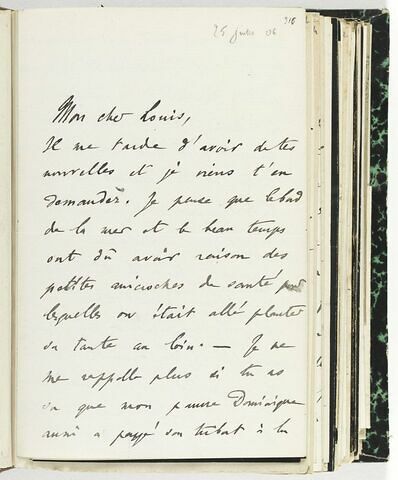 316
25 juillet 06
Mon cher Louis,
Il me tarde d'avoir de tes
nouvelles et je viens t'en
demander. Je pense que le bord
de la mer et le beau temps
ont dû avoir raison des
petites anicroches de santé pour
lesquelles on était allé planter
sa tente au loin. — Je ne
me rappelle plus si tu as
su que mon pauvre Dominique
aussi a payé son tribut à la